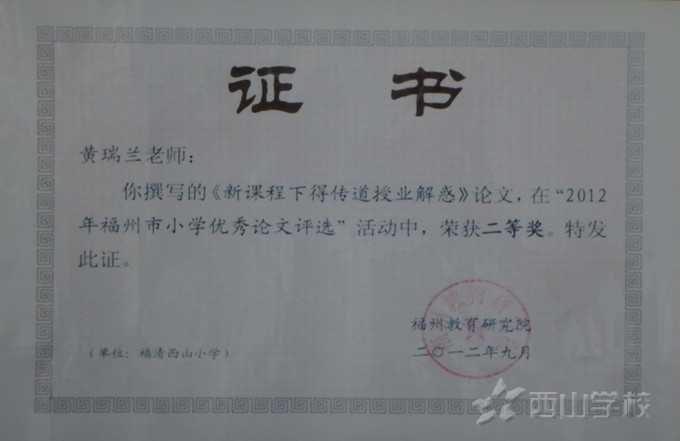 证 书
黄瑞兰老师：
你撰写的《新课程下得传道授业解惑》论文，在“2012
年福州市小学优秀论文评选”活动中，荣获二等奖。特发
此证。
福州教育研究院
（单位：福清西山小学）
二〇一二年九月
西山学校